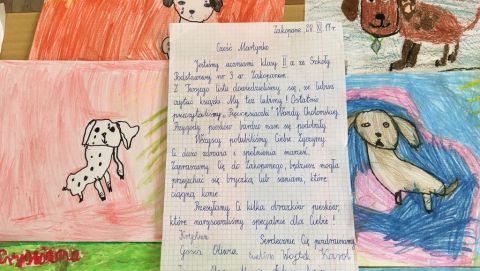 Zakopane, 28. XI. 17 r.
Cześć Martynko
Jesteśmy uczniami klasy II a ze Szkoły
Podstawowej nr 3 w Zakopanem.
Z Twojego listu dowiedzieliśmy się, że lubisz
czytać książki. My też lubimy! Ostatnio
przeczytaliśmy „Psiego najlepszego" Wandy Chotomskiej.
Przygody piesków bardzo nam się podobały.
Wszyscy polubiliśmy Ciebie. Życzymy
Ci dużo zdrowia i spełnienia marzeń.
Zapraszamy Cię do Zakopanego, będziesz mogła
przejechać się bryczką lub saniami, które
ciągną konie.
Przesyłamy Ci kilka obrazków piesków,
które narysowaliśmy specjalnie dla Ciebie!
Krystian Serdecznie Cię pozdrawiamy
Gosia Oliwia Ewelina Wojtek Karol
Krystiana